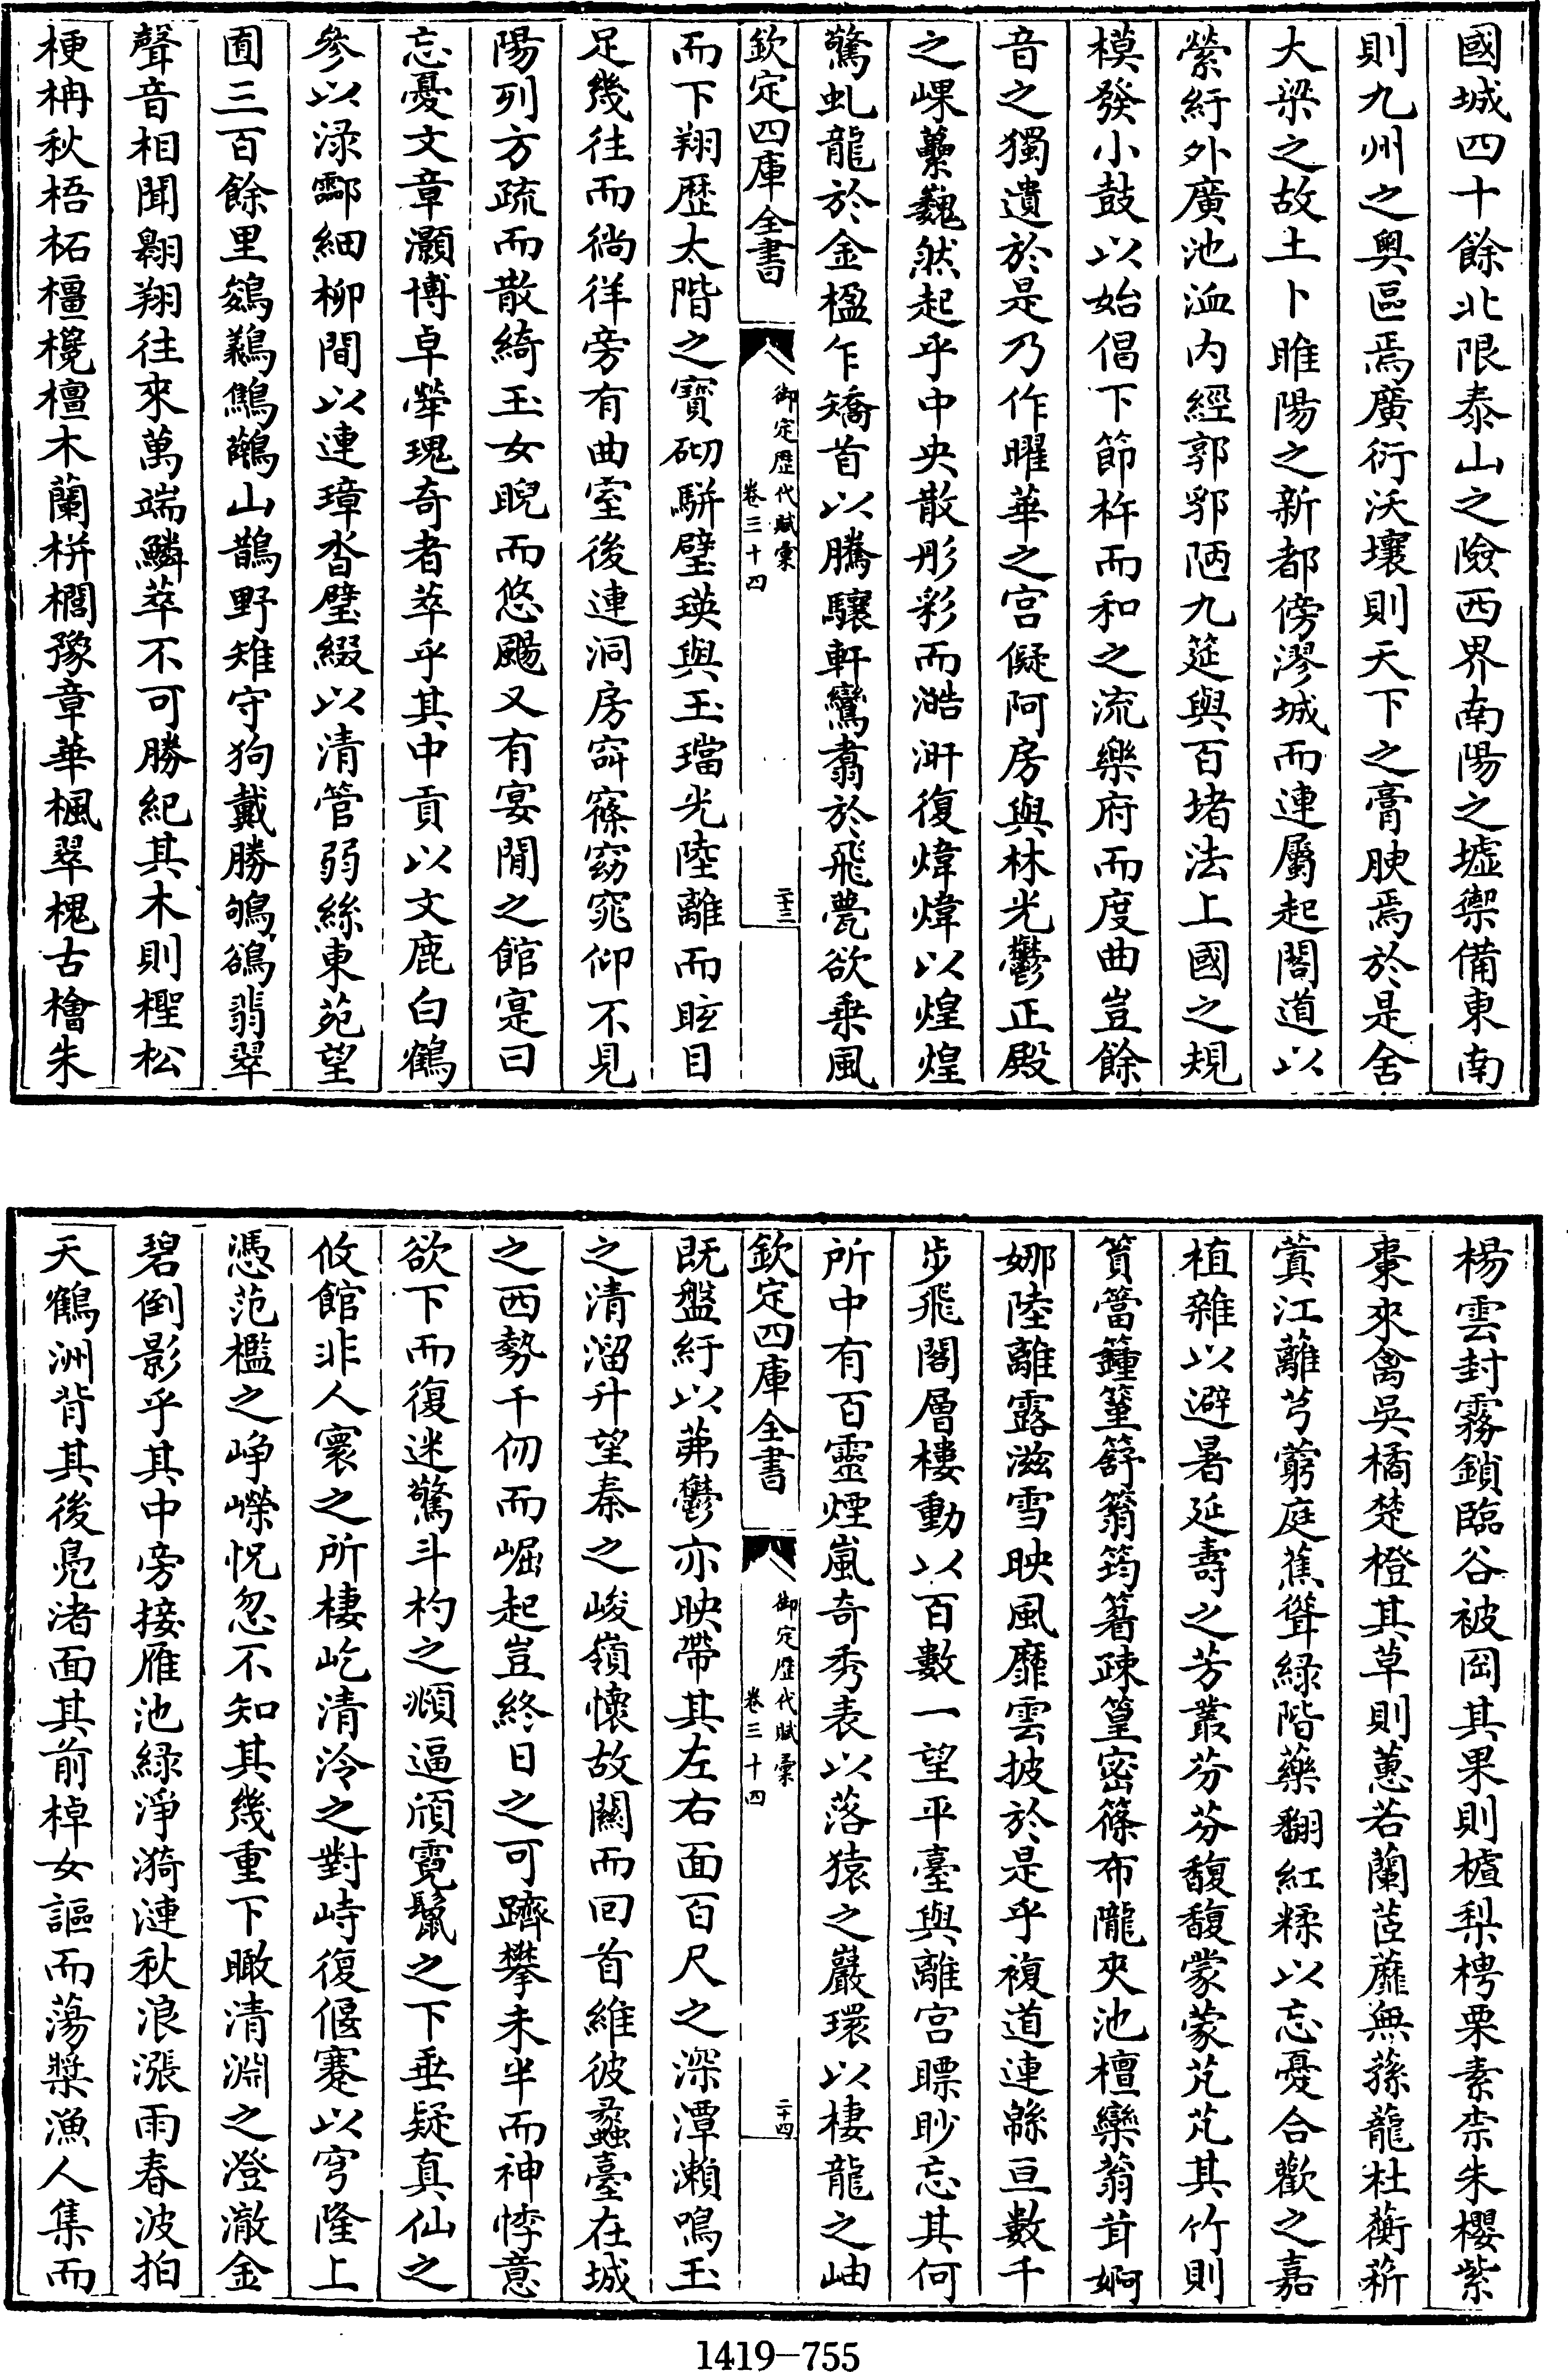 國城四十餘北限泰山之險西界南陽之墟禦備東南
則九州之奧區焉廣衍沃壤則天下之膏腴焉於是舍
大梁之故土卜雎陽之新都傍漻城而連屬起閣道以
縈紆外廣池洫内經郭郛陋九筵與百堵法上國之規
模發小鼓以始倡下節杵而和之流樂府而度曲豈餘
音之獨遺於是乃作曜華之宫儗阿房與林光鬱正殿
之㠔櫐巍然起乎中央散彤彩而澔汗復煒煒以煌煌
驚虬龍於金楹乍矯首以騰驤軒鸞翥於飛甍欲乗風
欽定四庫全書
御定歴代賦彙
卷三十四
二十三
而下翔歴太階之寶砌駢璧瑛與玉璫光陸離而眩目
足幾往而徜徉旁有曲室後連洞房窲窱窈窕仰不見
陽列方疏而散綺玉女睨而悠颺又有宴閒之館寔曰
忘憂文章灝博卓犖瑰奇者萃乎其中貢以文鹿白鶴
參以渌酃細柳間以連璋沓璧綴以清管弱絲東苑望
囿三百餘里鷄鶿鷦鷯山鵲野雉守狗戴勝鴝鵒翡翠
聲音相聞翱翔往來萬端鱗萃不可勝紀其木則檉松
梗枏秋梧柘橿欃檀木蘭栟櫚豫章華楓翠槐古檜朱
楊雲封霧鎖臨谷被岡其果則樝梨梬栗素柰朱櫻紫
棗來禽吳橘楚橙其草則蕙若蘭茝蘼蕪蓀蘢杜蘅菥
蓂江蘺芎藭庭蕉聳緑階藥翻紅糅以忘憂合歡之嘉
植雜以避暑延壽之芳叢芬芬馥馥蒙蒙芃芃其竹則
篔簹籦篁䈝篛筠䇡疎篁密篠布隴夾池檀欒蓊茸婀
娜陸離露滋雪映風靡雲披於是乎複道連緜亘數千
步飛閣層樓動以百數一望平臺與離宫瞟眇忘其何
所中有百靈煙嵐奇秀表以落猿之巖環以棲龍之岫
欽定四庫全書
御定歴代賦彙
卷三十四
二十四
既盤紆以茀鬱亦映帶其左右面百尺之深潭瀨鳴玉
之清溜升望秦之峻嶺懷故關而回首維彼蠡臺在城
之西勢千仞而崛起豈終日之可躋攀未半而神悸意
欲下而復迷驚斗杓之頫逼頎霓鬣之下垂疑真仙之
攸館非人寰之所棲屹清泠之對峙復偃蹇以穹隆上
憑范檻之崢嶸怳忽不知其幾重下瞰清淵之澄澈金
碧倒影乎其中旁接雁池緑淨漪漣秋浪漲雨春波拍
天鶴洲背其後鳧渚面其前棹女謳而蕩槳漁人集而
1419-755